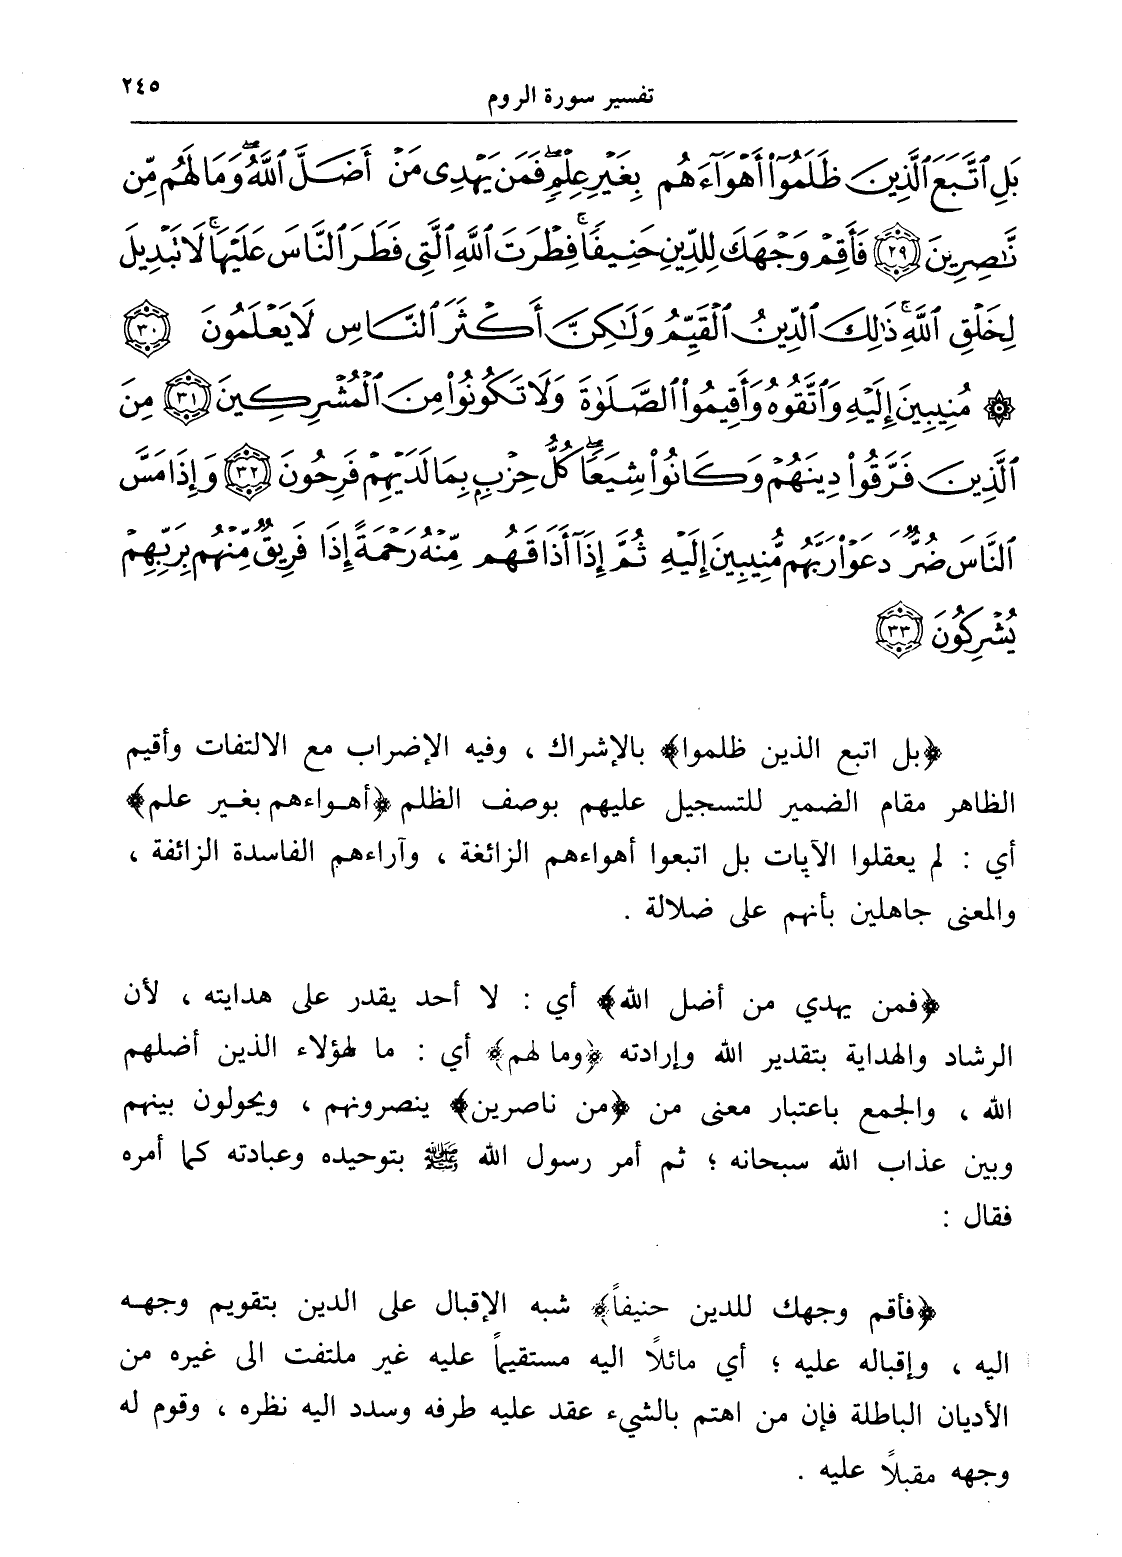 تفسير سورة الروم ٢٤٥
بَلِ ٱتَّبَعَ ٱلَّذِينَ ظَلَمُوٓا۟ أَهْوَآءَهُم بِغَيْرِ عِلْمٍۖ فَمَن يَهْدِى مَنْ أَضَلَّ ٱللَّهُۖ وَمَا لَهُم مِّن
نَّـٰصِرِينَ ﴿٢٩﴾ فَأَقِمْ وَجْهَكَ لِلدِّينِ حَنِيفًاۚ فِطْرَتَ ٱللَّهِ ٱلَّتِى فَطَرَ ٱلنَّاسَ عَلَيْهَاۚ لَا تَبْدِيلَ
لِخَلْقِ ٱللَّهِۚ ذَٰلِكَ ٱلدِّينُ ٱلْقَيِّمُ وَلَـٰكِنَّ أَكْثَرَ ٱلنَّاسِ لَا يَعْلَمُونَ ﴿٣٠﴾
۞ مُنِيبِينَ إِلَيْهِ وَٱتَّقُوهُ وَأَقِيمُوا۟ ٱلصَّلَوٰةَ وَلَا تَكُونُوا۟ مِنَ ٱلْمُشْرِكِينَ ﴿٣١﴾ مِنَ
ٱلَّذِينَ فَرَّقُوا۟ دِينَهُمْ وَكَانُوا۟ شِيَعًاۖ كُلُّ حِزْبٍۭ بِمَا لَدَيْهِمْ فَرِحُونَ ﴿٣٢﴾ وَإِذَا مَسَّ
ٱلنَّاسَ ضُرٌّ دَعَوْا۟ رَبَّهُم مُّنِيبِينَ إِلَيْهِ ثُمَّ إِذَآ أَذَاقَهُم مِّنْهُ رَحْمَةً إِذَا فَرِيقٌ مِّنْهُم بِرَبِّهِمْ
يُشْرِكُونَ ﴿٣٣﴾
﴿بل اتبع الذين ظلموا﴾ بالإشراك ، وفيه الإضراب مع الالتفات وأقيم
الظاهر مقام الضمير للتسجيل عليهم بوصف الظلم ﴿أهواءهم بغير علم﴾
أي : لم يعقلوا الآيات بل اتبعوا أهواءهم الزائغة ، وآراءهم الفاسدة الزائفة ،
والمعنى جاهلين بأنهم على ضلالة .
﴿فمن يهدي من أضل الله﴾ أي : لا أحد يقدر على هدايته ، لأن
الرشاد والهداية بتقدير الله وإرادته ﴿وما لهم﴾ أي : ما لهؤلاء الذين أضلهم
الله ، والجمع باعتبار معنى من ﴿من ناصرين﴾ ينصرونهم ، ويحولون بينهم
وبين عذاب الله سبحانه ؛ ثم أمر رسول الله ﷺ بتوحيده وعبادته كما أمره
فقال :
﴿فأقم وجهك للدين حنيفاً﴾ شبه الإقبال على الدين بتقويم وجهه
اليه ، وإقباله عليه ؛ أي مائلاً اليه مستقيماً عليه غير ملتفت الى غيره من
الأديان الباطلة فإن من اهتم بالشيء عقد عليه طرفه وسدد اليه نظره ، وقوم له
وجهه مقبلاً عليه .